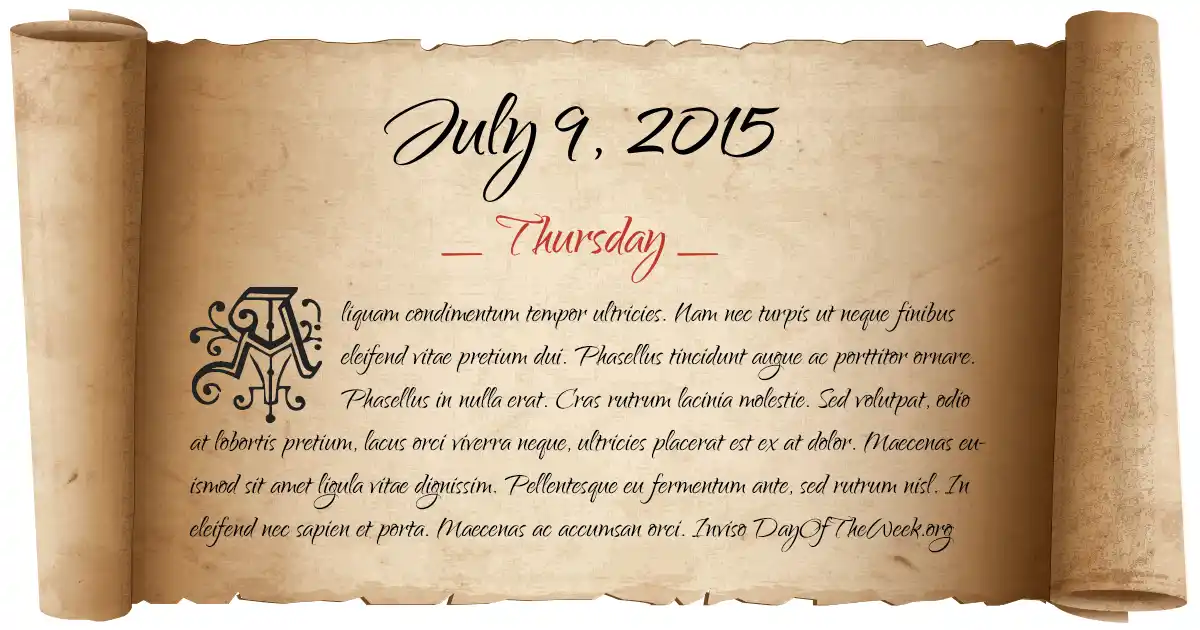 July 9, 2015
Thursday
Aliquam condimentum tempor ultricies. Nam nec turpis ut neque finibus
eleifend vitae pretium dui. Phasellus tincidunt augue ac porttitor ornare.
Phasellus in nulla erat. Cras rutrum lacinia molestie. Sed volutpat, odio
at lobortis pretium, lacus orci viverra neque, ultricies placerat est ex at dolor. Maecenas eu-
ismod sit amet ligula vitae dignissim. Pellentesque eu fermentum ante, sed rutrum nisl. In
eleifend nec sapien et porta. Maecenas ac accumsan orci. Inviso DayOfTheWeek.org